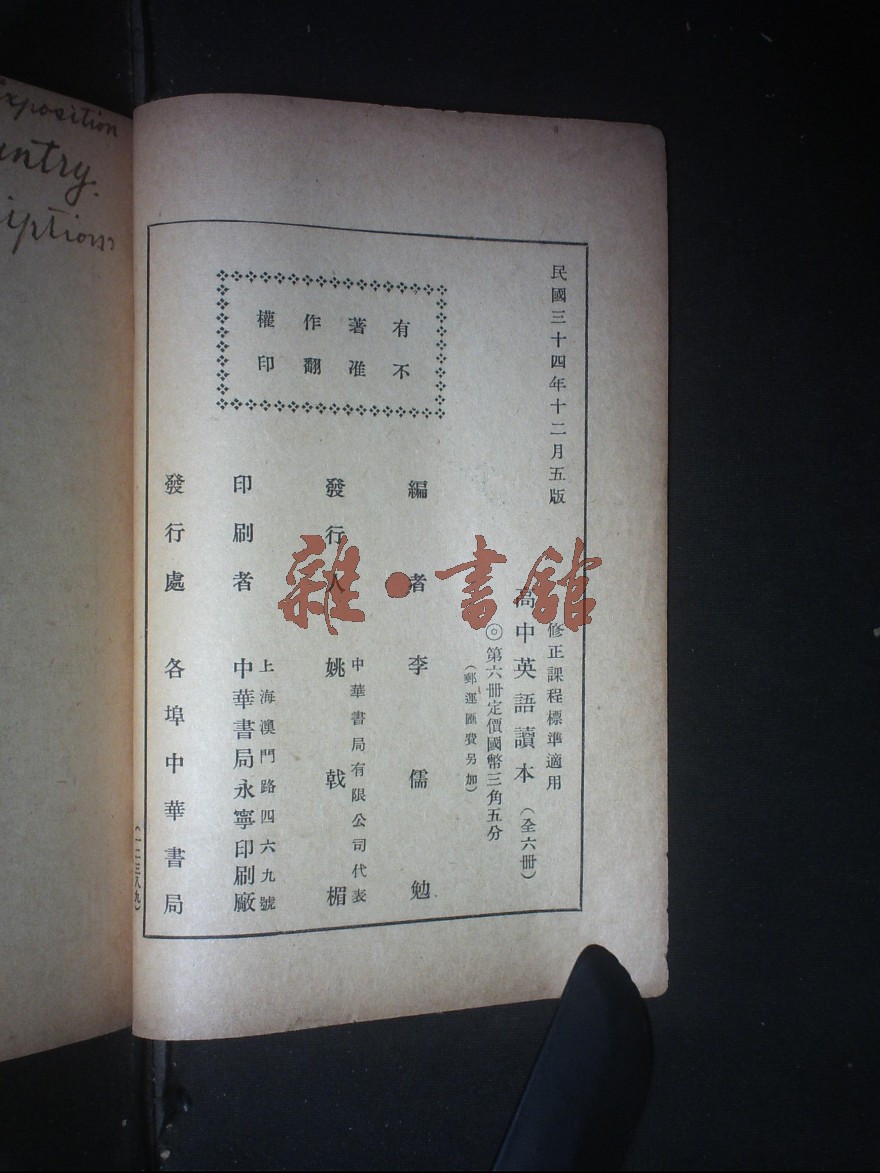 xposition
untry.
iptions
民國三十四年十二月五版
修正課程標準適用
高中英語讀本（全六冊）
◎第六冊定價國幣三角五分
（郵運匯費另加）
有著作權
不准翻印
編者 李儒勉
中華書局有限公司代表
發行人 姚戟楣
上海澳門路四六九號
印刷者 中華書局永寧印刷廠
發行處 各埠中華書局
（一二三八九）
雜·書館